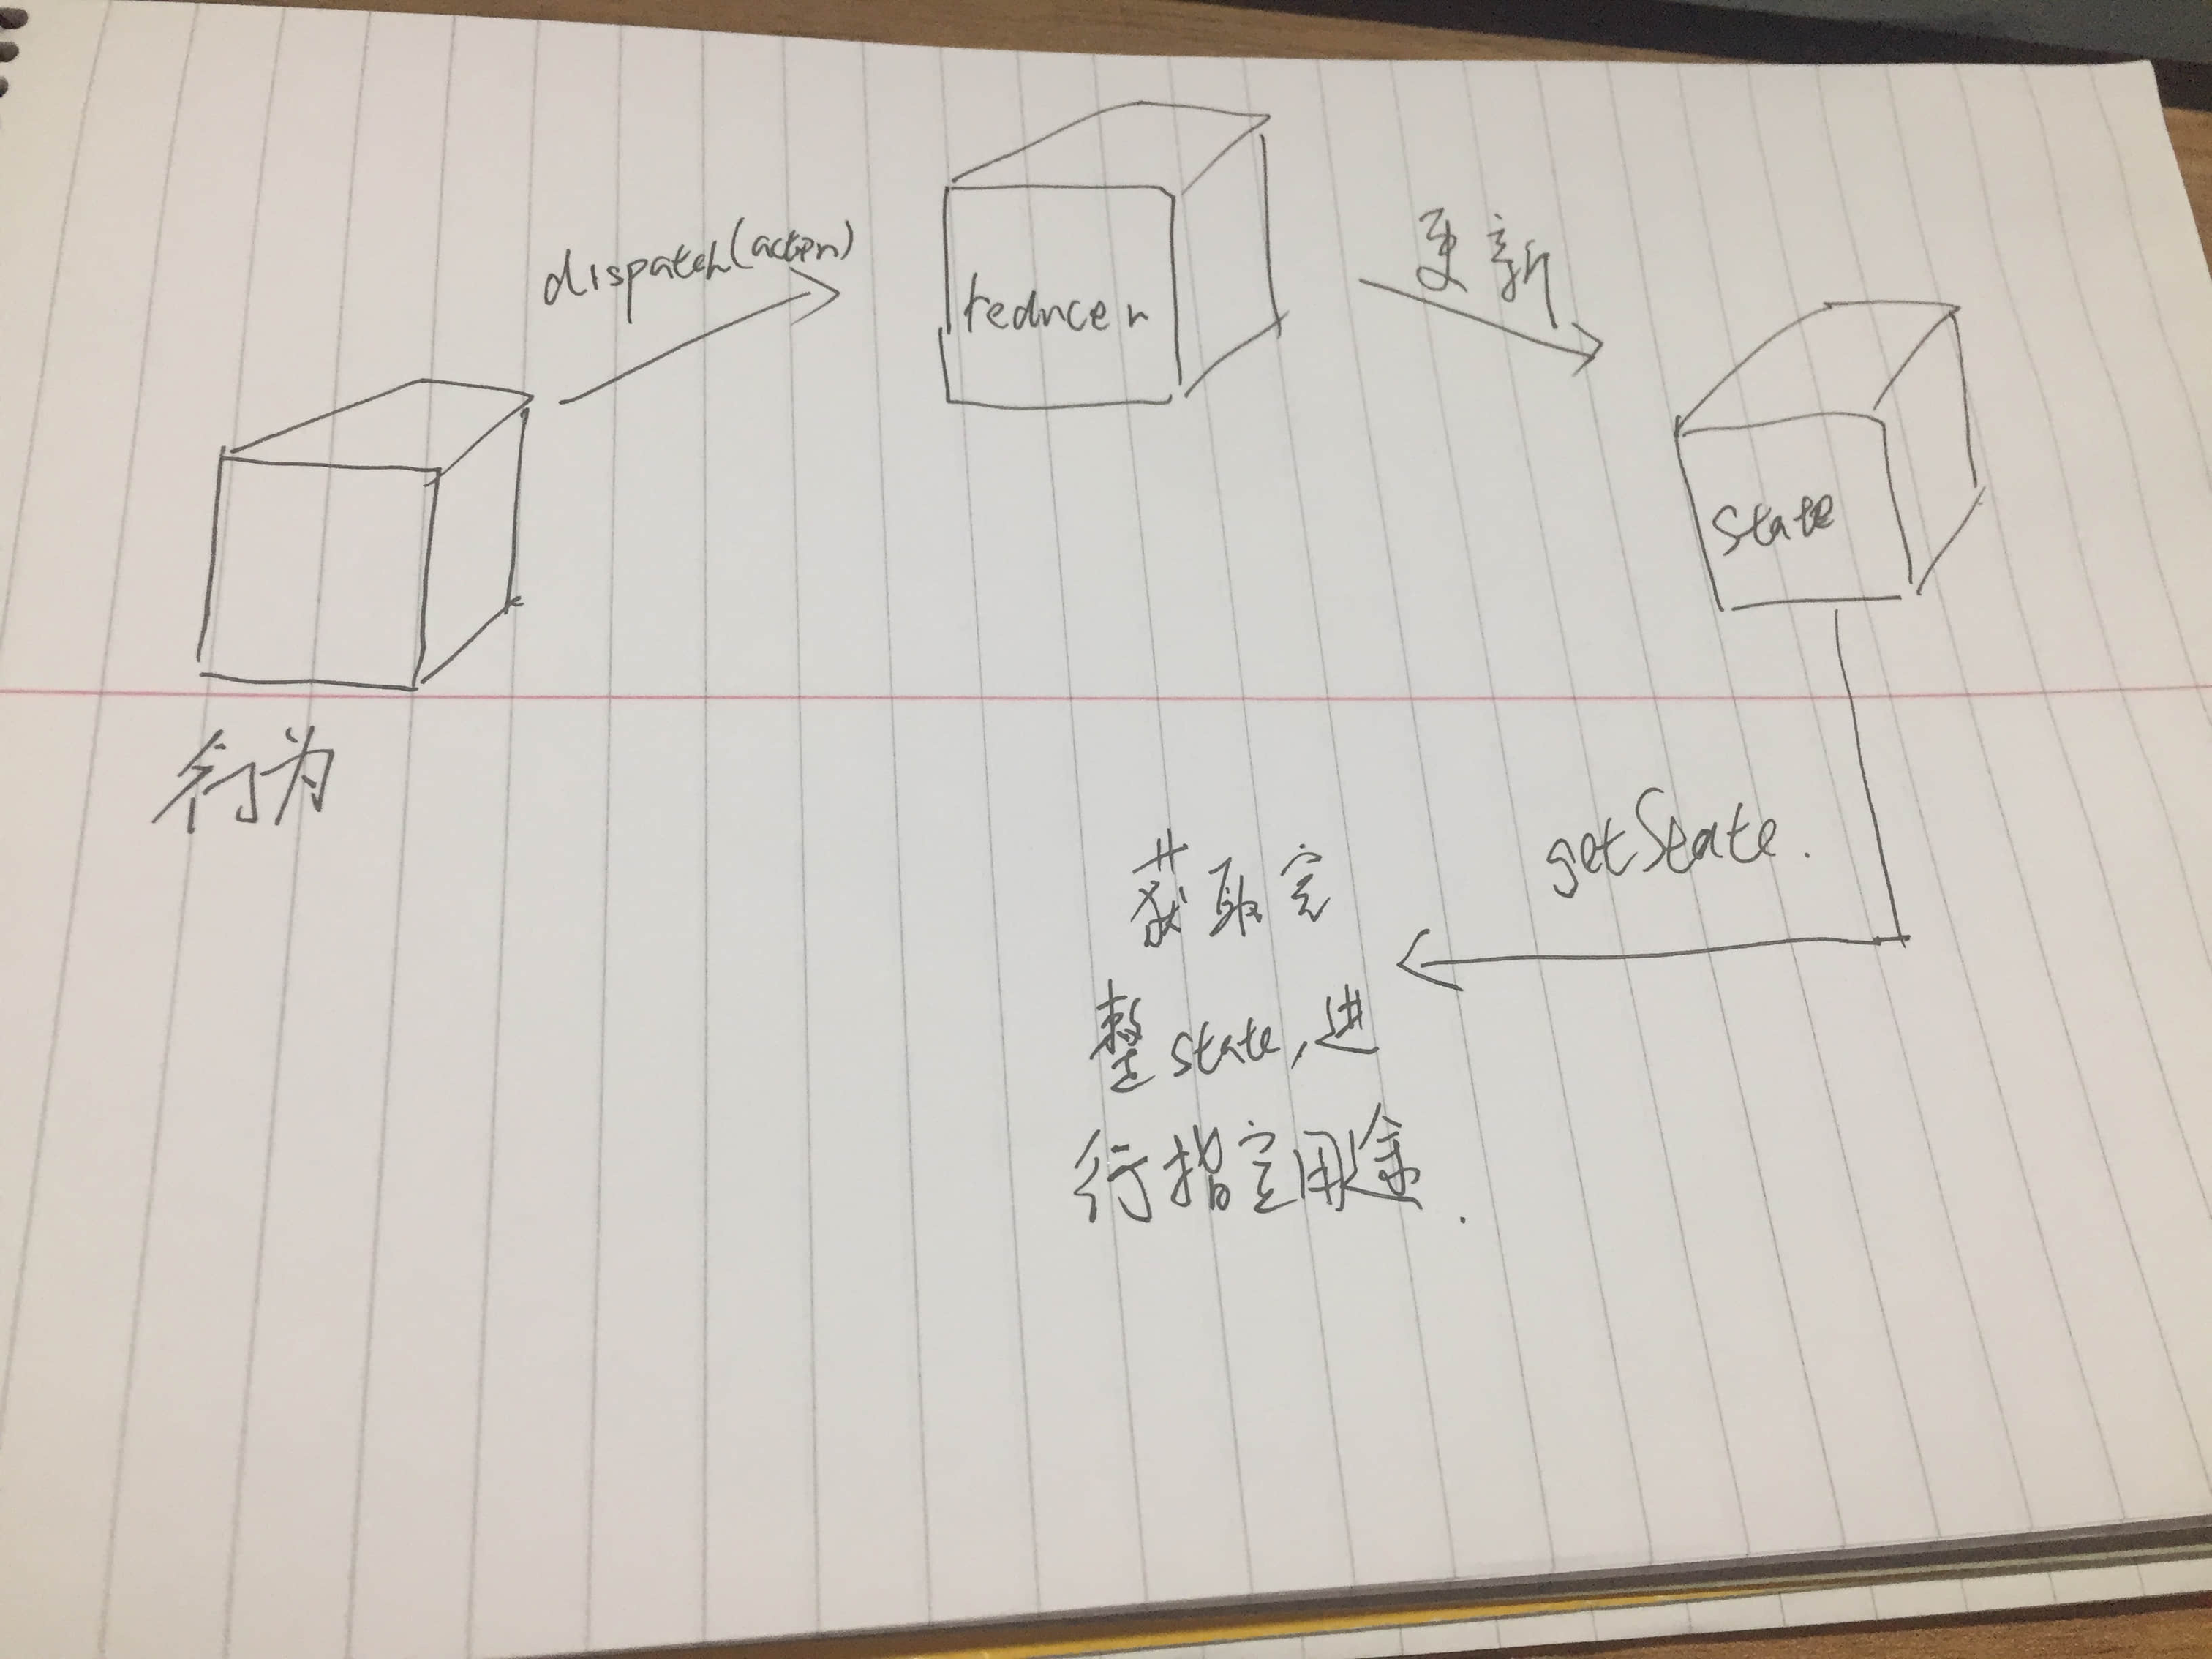 dispatch(action)
reducer
更新
state
行为
getState.
获取完
整state,进
行指定用途.